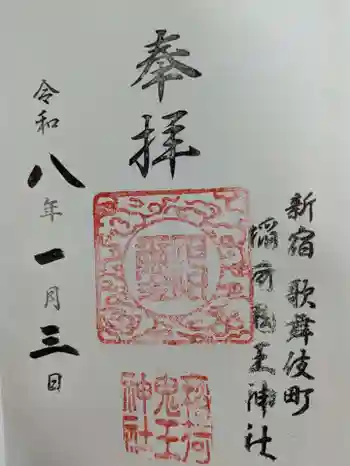 新宿歌舞伎町
稲荷鬼王神社
奉拝
稲荷
鬼王
神社
令和八年一月三日